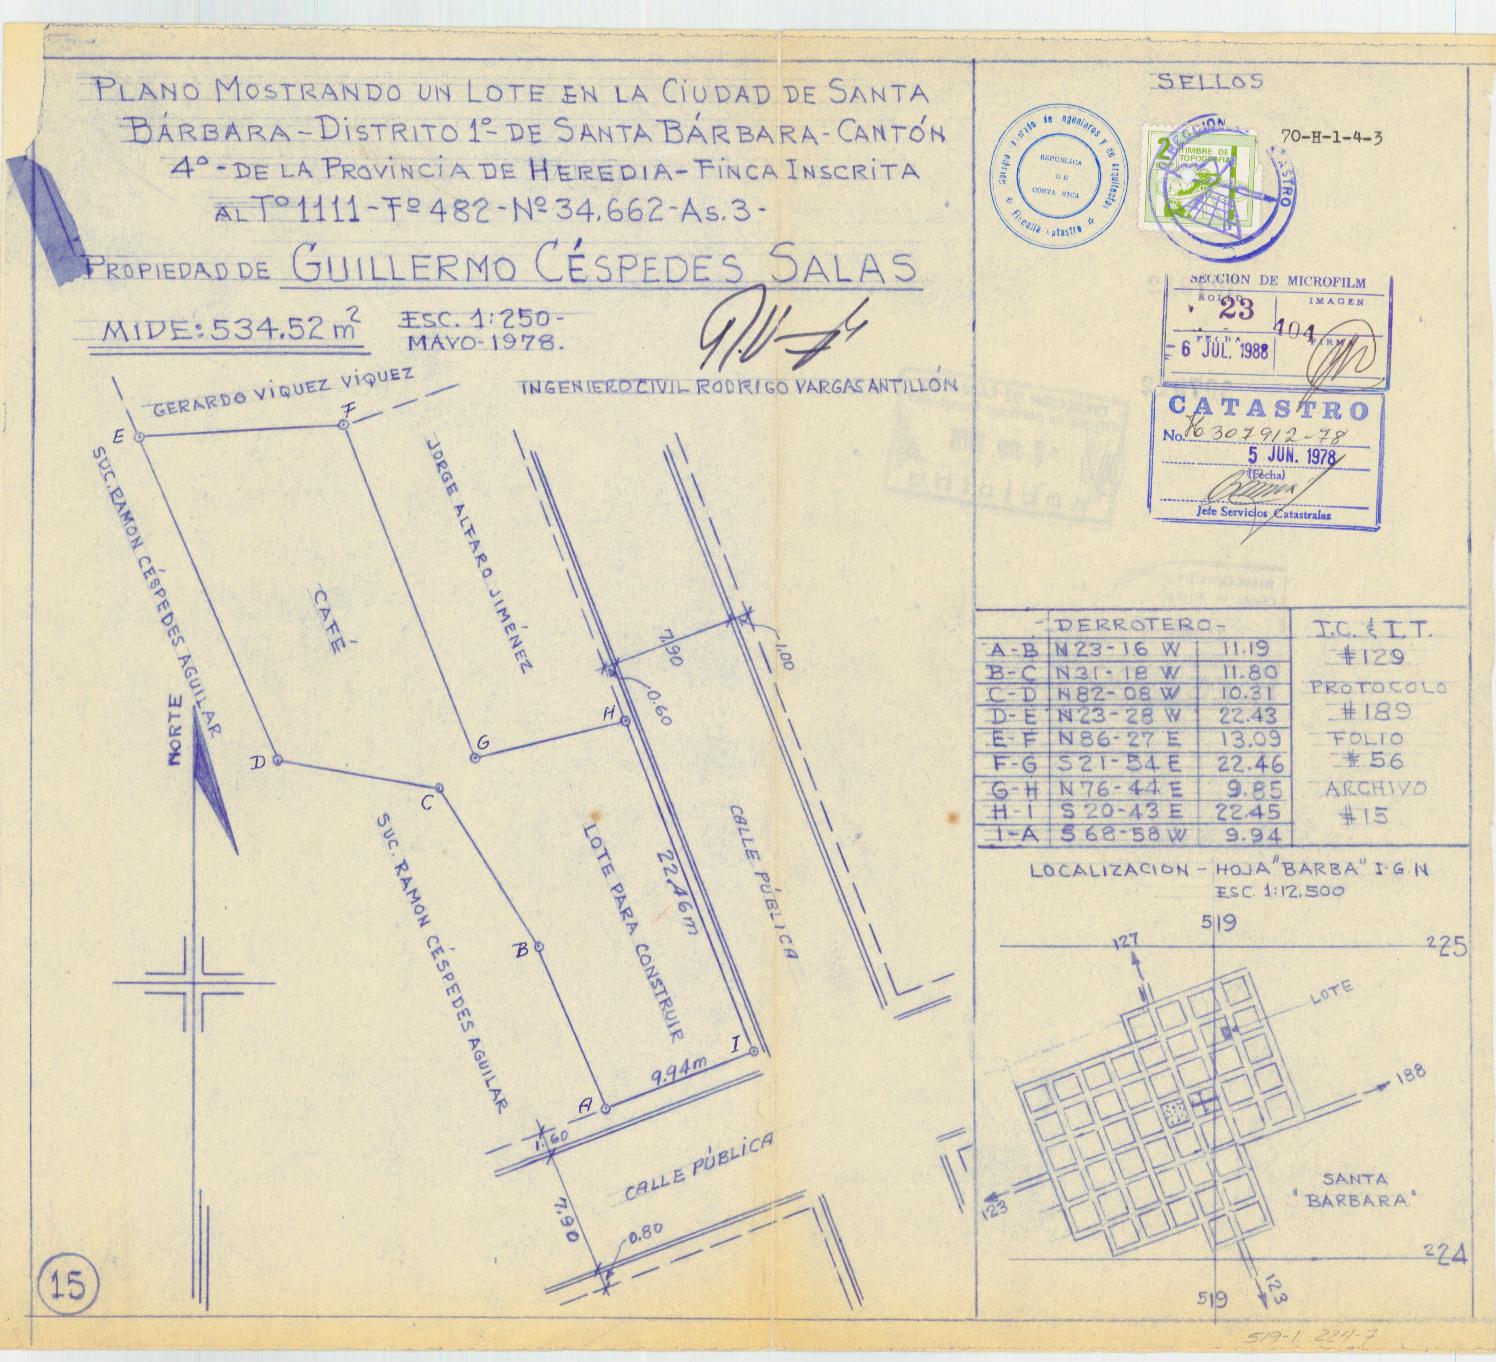 PLANO MOSTRANDO UN LOTE EN LA CIUDAD DE SANTA
BÁRBARA-DISTRITO 1º-DE SANTA BÁRBARA-CANTÓN
4º-DE LA PROVINCIA DE HEREDIA-FINCA INSCRITA
AL Tº1111-Fº482-Nº34.662-As.3-
PROPIEDAD DE GUILLERMO CÉSPEDES SALAS
MIDE: 534.52 m²
ESC. 1:250-
MAYO-1978.
INGENIERO CIVIL RODRIGO VARGAS ANTILLÓN
GERARDO VÍQUEZ VÍQUEZ
E
F
SUC. RAMON CÉSPEDES AGUILAR
JORGE ALFARO JIMÉNEZ
CAFÉ
7.90
1.00
0.60
H
G
D
C
NORTE
SUC. RAMON CÉSPEDES AGUILAR
LOTE PARA CONSTRUIR
22.46m
CALLE PÚBLICA
B
I
9.94m
A
1.60
CALLE PÚBLICA
7.90
0.80
15
SELLOS
70-H-1-4-3
REPUBLICA
DE
COSTA RICA
Fiscalía Catastro
2
TIMBRE DE
TOPOGRAFIA
SECCION DE MICROFILM
ROLLO
IMAGEN
23
104
FECHA
FIRMA
6 JUL. 1988
CATASTRO
No. H6307912-78
5 JUN. 1978
(Fecha)
Jefe Servicios Catastrales
-DERROTERO-
A-B N23-16 W 11.19
B-C N31-18 W 11.80
C-D N82-08 W 10.31
D-E N23-28 W 22.43
E-F N86-27 E 13.09
F-G S21-54 E 22.46
G-H N76-44 E 9.85
H-I S20-43 E 22.45
I-A S68-58 W 9.94
I.C. & I.T.
#129
PROTOCOLO
#189
FOLIO
#56
ARCHIVO
#15
LOCALIZACION - HOJA "BARBA" I.G.N
ESC. 1:12.500
519
127
225
LOTE
188
SANTA
"BARBARA"
123
224
123
519
519-1 224-7